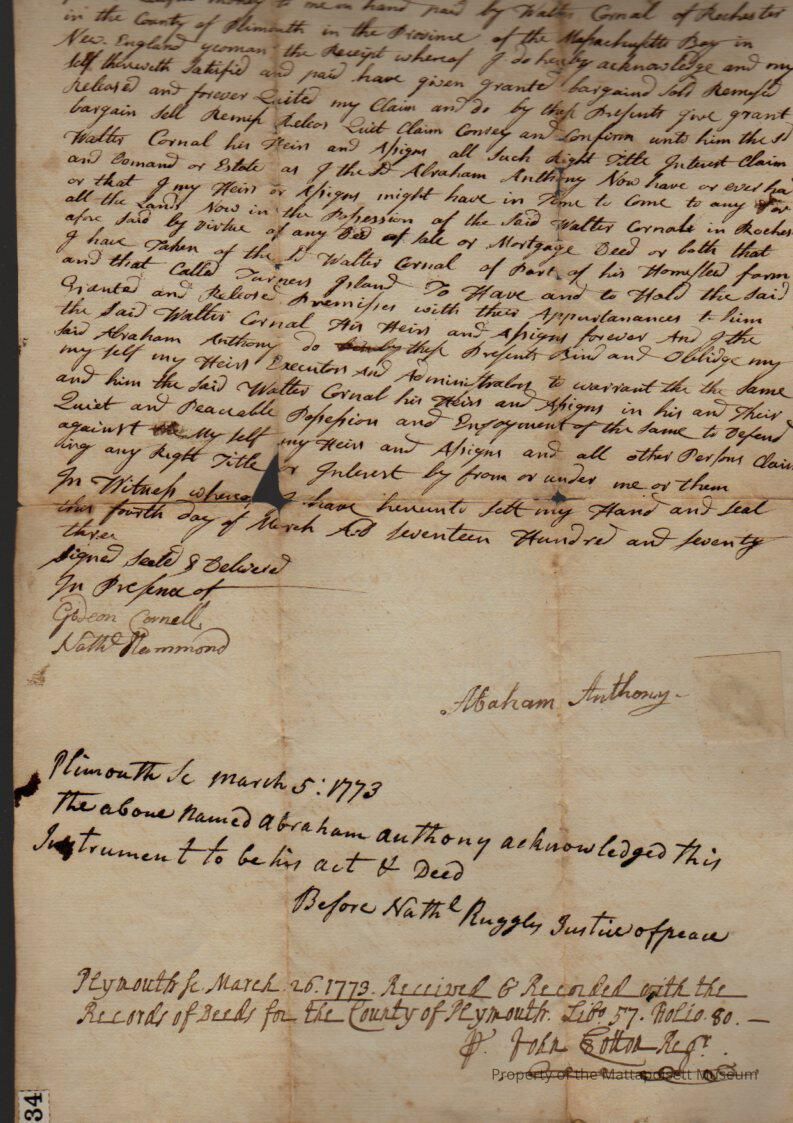 money to me in hand paid by Walter Cornal of Rochester
in the County of Plimouth in the Province of the Massachusetts Bay in
New England yeoman the Receipt whereof I do hereby acknowledge and my
self therewith Satisfid and paid have given grante bargaind Sold Remised
Released and forever Quited my Claim and do by these Presents give grant
bargain Sell Remise Releas Quit Claim Convey and Confirm unto him the Sd
Walter Cornal his Heirs and Assigns all Such Right Title Interest Claim
and Demand or Estate as I the Sd Abraham Anthony Now have or ever had
or that I my Heirs or Assigns might have in Time to Come to any or
all the Lands Now in the Possession of the Said Walter Cornals in Roches
afore Said by virtue of any Deed of Sale or Mortgage Deed or both that
I have Taken of the Sd Walter Cornal of Part of his Homested farm
and that Called Turners Island To Have and to Hold the Said
Granted and Released Premisses with their Appurtanances to him
the Said Walter Cornal His Heirs and Assigns forever And I the
Said Abraham Anthony do by these Presents Bind and Obblidge my
my self my Heirs Executors and Administrators to warrant the the Same
and him the Said Walter Cornal his Heirs and Assigns in his and Their
Quiet and Peaceable Possession and Enjoyment of the Same to Defend
against My self my Heirs and Assigns and all other Persons Claim
ing any Right Title or Interest by from or under me or them
In Witness whereof I have hereunto Sett my Hand and Seal
this fourth day of March AD Seventeen Hundred and Seventy
three
Signed Seald & Delivered
In Presence of
Gideon Cornell
Nathll Hammond
Abraham Anthony
Plimouth Sc march 5: 1773
The above Named Abraham anthony acknowledged this
Instrument to be his act & Deed
Before Nathl Ruggles Justice of peace
Plymouth Sc. March 26. 1773. Received & Recorded with the
Records of Deeds for the County of Plymouth. Libo 57. Folio. 80. —
P. John Cotton Regr.
Property of the Mattapoisett Museum
34